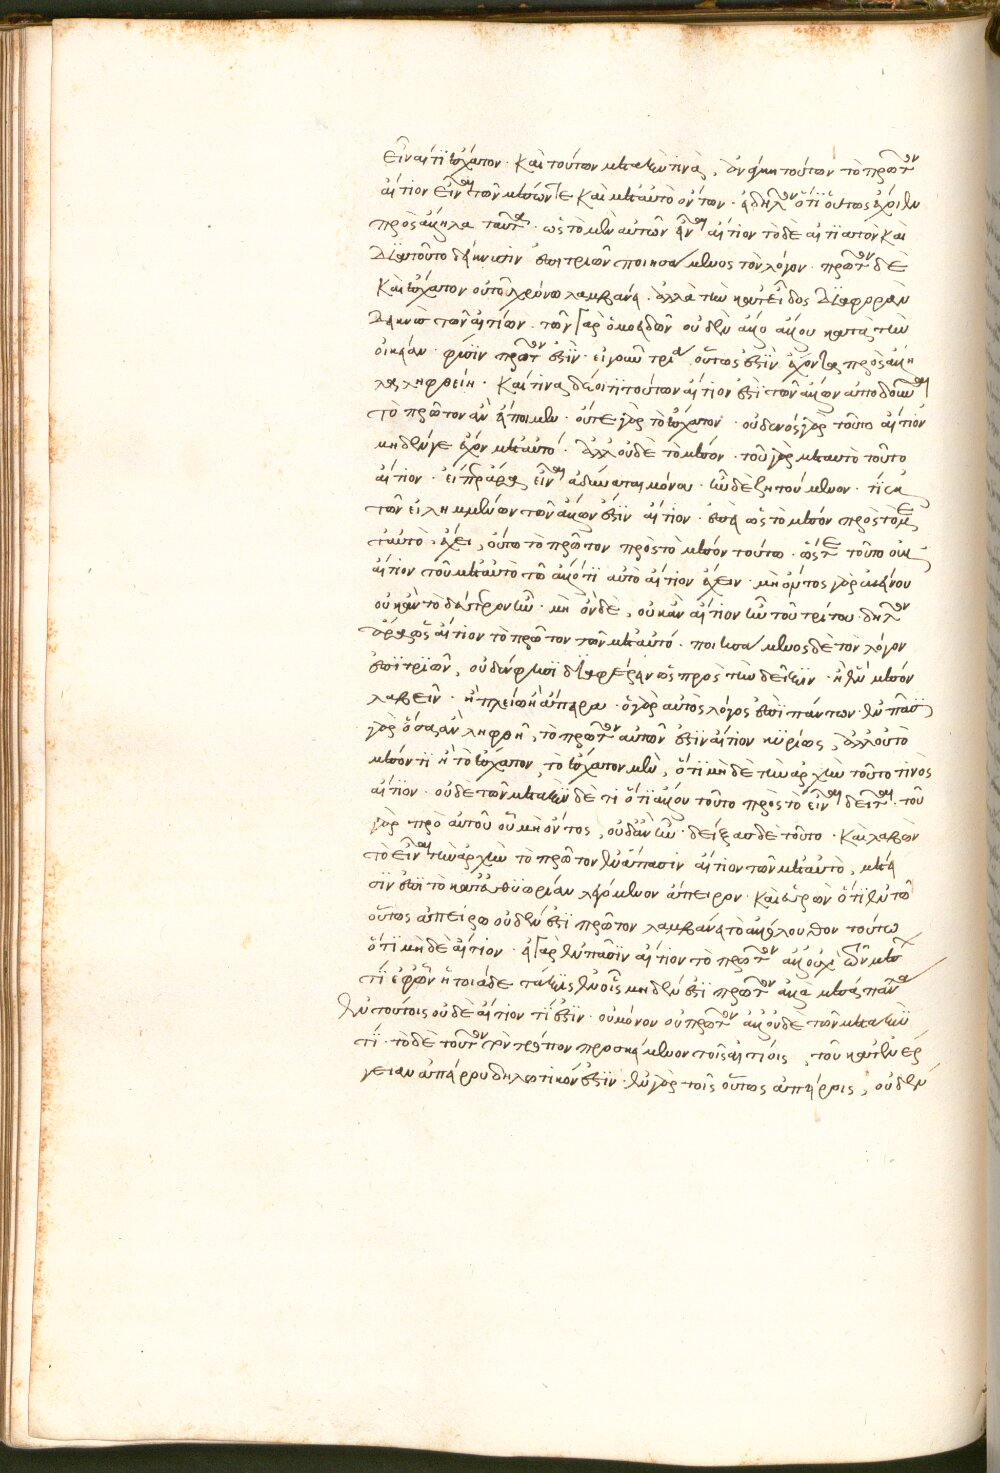 εἶναί τι ἔσχατον · καὶ τούτων μεταξύ τινα, ἀνάγκη τούτων τὸ πρῶτον
αἴτιον εἶναι τῶν μέσων τε καὶ μετ' αὐτὸ ὄντων · δῆλον ὅτι οὕτως ἔχοιεν
πρὸς ἄλληλα ταῦτα · ὡς τὸ μὲν αὐτῶν εἶναι αἴτιον τὸ δὲ αἰτιατὸν καὶ
διὰ τοῦτο δείκνυσιν ἐπὶ τριῶν ποιησάμενος τὸν λόγον · πρῶτον δὲ
καὶ ἔσχατον οὐ τῷ χρόνῳ λαμβάνει · ἀλλὰ τὴν κατ' εἶδος διαφορὰν
δείκνυσι τῶν αἰτίων · τῶν γὰρ ὁμοειδῶν οὐδὲν ἄλλο ἄλλου κατὰ τὴν
οἰκείαν φύσιν πρῶτον ἐστὶν · εἰ γοῦν τρία οὕτως ἐστὶν ἔχοντα πρὸς ἄλλη
λα ληφθείη · καί τινα δέοι τι τούτων αἴτιον ἐπὶ τῶν ἄλλων ἀποδοῦναι
τὸ πρῶτον ἂν εἴποιμεν · οὔτε γὰρ τὸ ἔσχατον · οὐδενὸς γὰρ τοῦτο αἴτιον
μηδέν γε ἔχον μετ' αὐτό · ἀλλ' οὐδὲ τὸ μέσον · τοῦ γὰρ μετ' αὐτὸ τοῦτο
αἴτιον · εἴπερ ἄρα εἶναι δύναται μόνου · ἦν δὲ ζητούμενον · τί
τῶν εἰλημμένων τῶν ἄλλων ἐστὶν αἴτιον · ἐπεὶ ὡς τὸ μέσον πρὸς τὸ με
τ' αὐτὸ ἔχει, οὕτω τὸ πρῶτον πρὸς τὸ μέσον τούτῳ · ὥστε τοῦτο οὐκ
αἴτιον τοῦ μετ' αὐτὸ τῷ ἄλλό τι αὐτὸ αἴτιον ἔχειν · μὴ ὄντος γὰρ ἐκείνου
οὐκ ἂν τὸ δεύτερον ἦν · μὴ ὂν δὲ, οὐκ ἂν αἴτιον ἦν τοῦ τρίτου · δῆλον
ἄρα ὡς αἴτιον τὸ πρῶτον τῶν μετ' αὐτό · ποιησάμενος δὲ τὸν λόγον
ἐπὶ τριῶν, οὐδέν φησι διαφέρειν ὡς πρὸς τὴν δεῖξιν · ἢ ἓν μέσον
λαβεῖν · ἢ πλείω ἢ ἄπειρα · ὁ γὰρ αὐτὸς λόγος ἐπὶ πάντων · ἐν πᾶσι
γὰρ ὅσα ἂν ληφθῇ, τὸ πρῶτον αὐτῶν ἐστὶν αἴτιον κυρίως, ἀλλ' οὐ τὸ
μέσόν τι ἢ τὸ ἔσχατον, τὸ ἔσχατον μὲν, ὅτι μὴ δὲ τὴν ἀρχὴν τοῦτο τινὸς
αἴτιον · οὐδὲ τῶν μεταξὺ δέ τι ὅτι ἄλλου τοῦτο πρὸς τὸ εἶναι δεῖται · τοῦ
γὰρ πρὸ αὐτοῦ οὗ μὴ ὄντος, οὐδ' ἂν ἦν · δείξας δὲ τοῦτο · καὶ λαβὼν
τὸ εἶναι τὴν ἀρχὴν τὸ πρῶτον ἐν ἅπασιν αἴτιον τῶν μετ' αὐτὸ, μέτει
σιν ἐπὶ τὸ κατ' εὐθυωρίαν λεγόμενον ἄπειρον · καὶ εὑρὼν ὅτι ἐν τῷ
οὕτως ἀπείρῳ οὐδέν ἐστι πρῶτον λαμβάνει τὸ ἀκόλουθον τούτῳ
ὅτι μηδὲ αἴτιον · εἰ γὰρ ἐν πᾶσιν αἴτιον τὸ πρῶτον ἀλλ' οὐχὶ τῶν μέσων
τί ἐφ' ὧν ἡ τοιάδε τάξις ἐν οἷς μηδέν ἐστι πρῶτον ἀλλὰ μέσα πάντα
ἐν τούτοις οὐδὲ αἴτιον τί ἐστὶν · οὐ μόνον οὐ πρῶτον ἀλλ' οὐδὲ τῶν μεταξύ
τι · τὸ δὲ τοῦτον τὸν τρόπον προσκείμενον τοῖς αἰτίοις, τοῦ κατ' ἐνέρ
γειαν ἀπείρου δηλωτικόν ἐστιν · ἐν γὰρ τοῖς οὕτως ἀπείροις, οὐδὲν